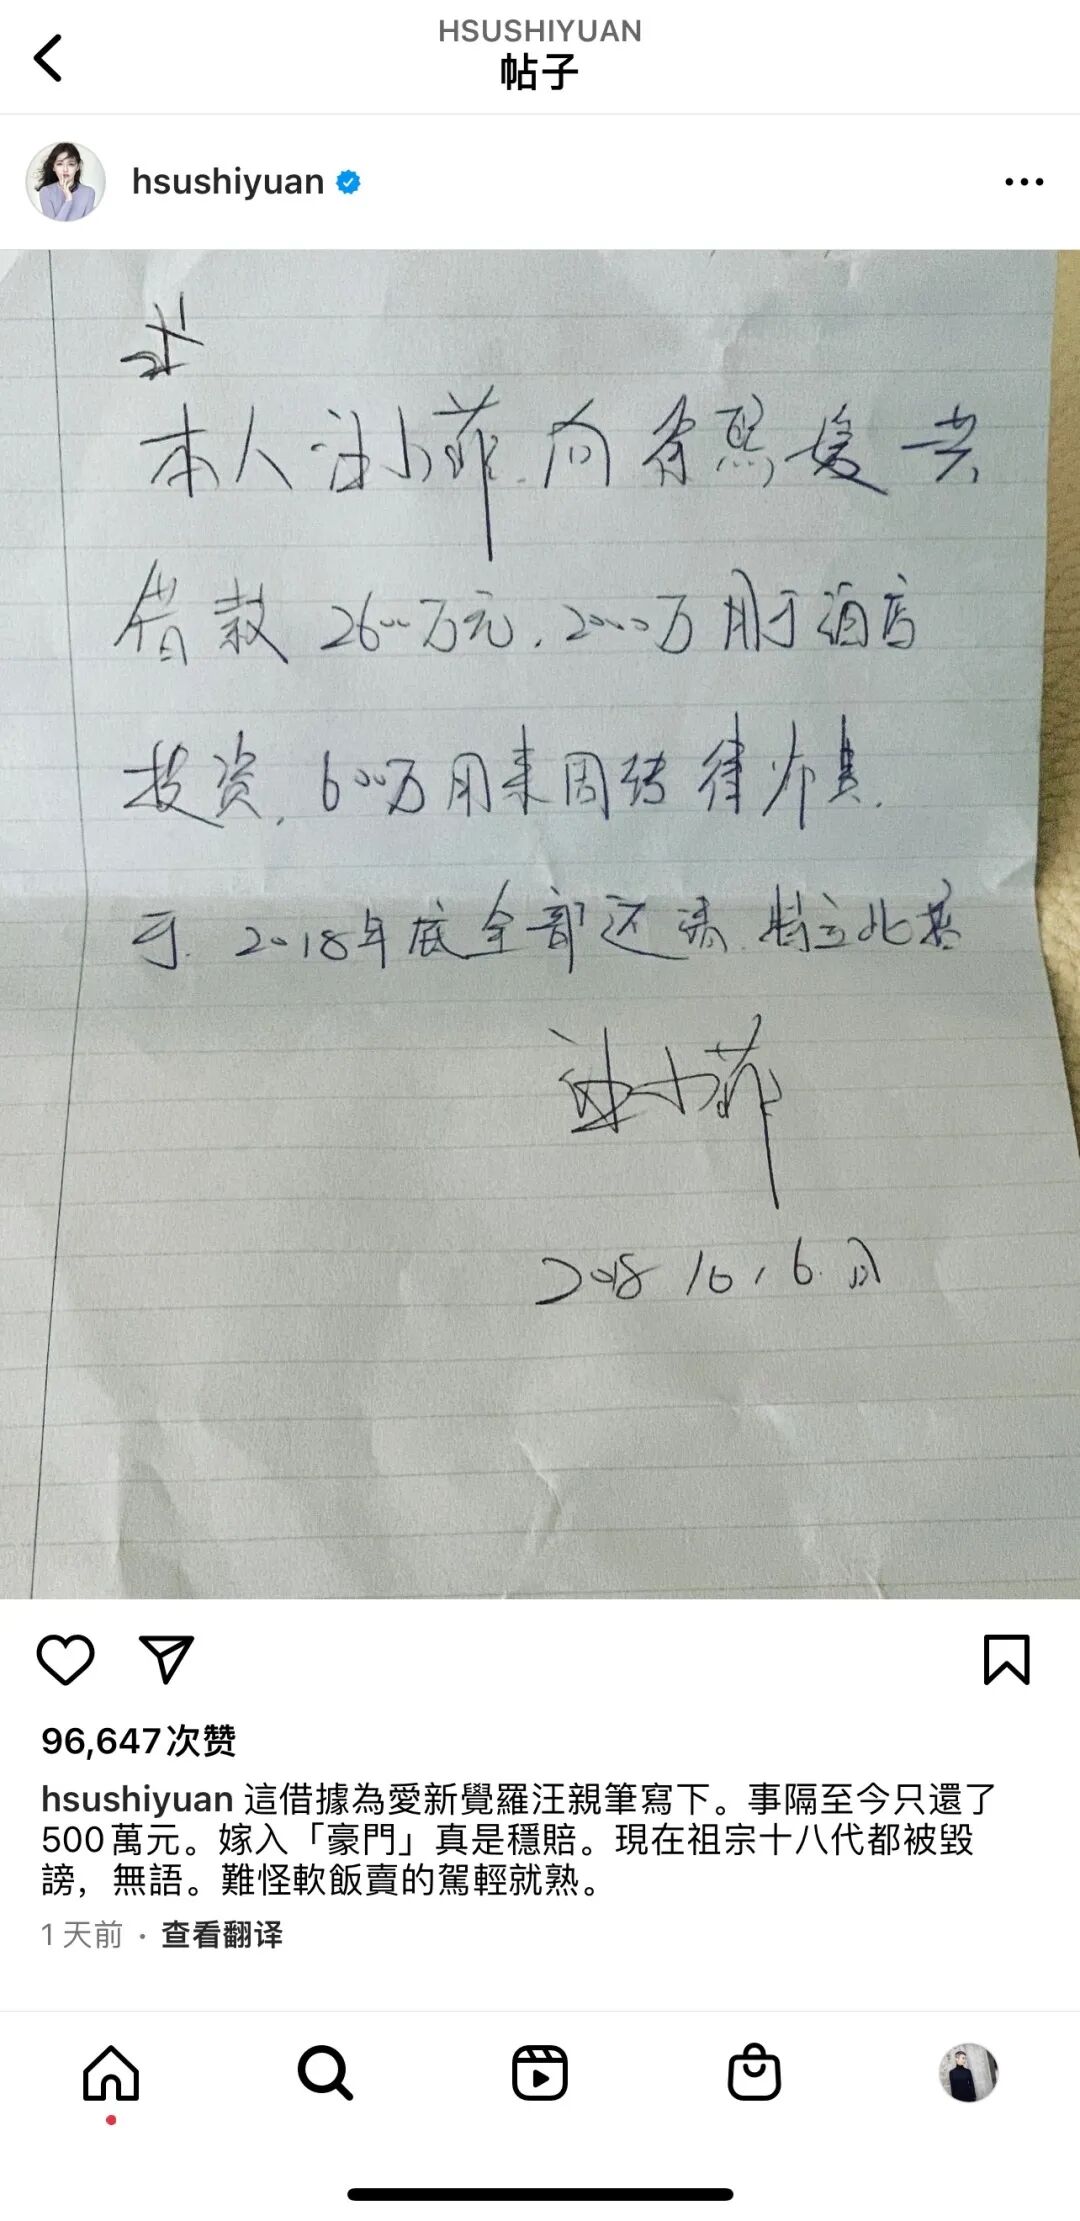 HSUSHIYUAN
帖子
hsushiyuan
本人汪小菲向徐熙媛共
借款2600万元，2000万用于酒店
投资，600万用来周转律师费，
于2018年底全部还清，特立此据
汪小菲
2018 10，6日
96,647次赞
hsushiyuan 這借據為愛新覺羅汪親筆寫下。事隔至今只還了
500萬元。嫁入「豪門」真是穩賠。現在祖宗十八代都被毀
謗，無語。難怪軟飯賣的駕輕就熟。
1天前 · 查看翻译